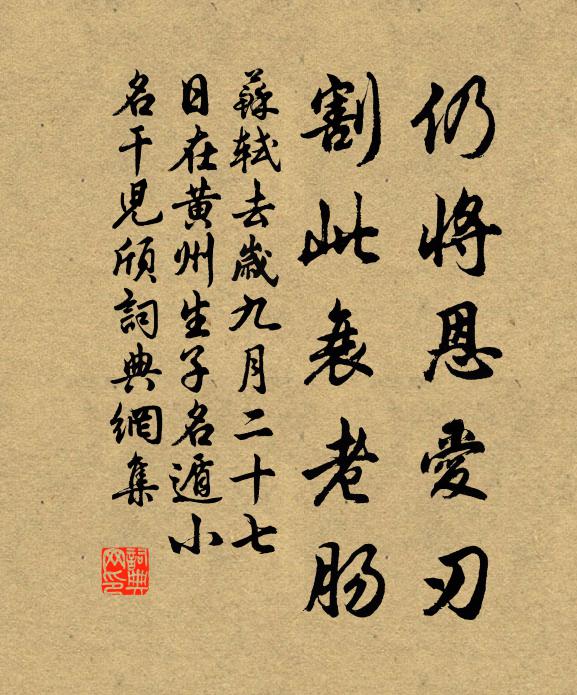 仍將恩愛刃
割此衰老腸
蘇軾去歲九月二十七
日在黃州生子名遁小
名干兒頎詞典網集
詞典
网印